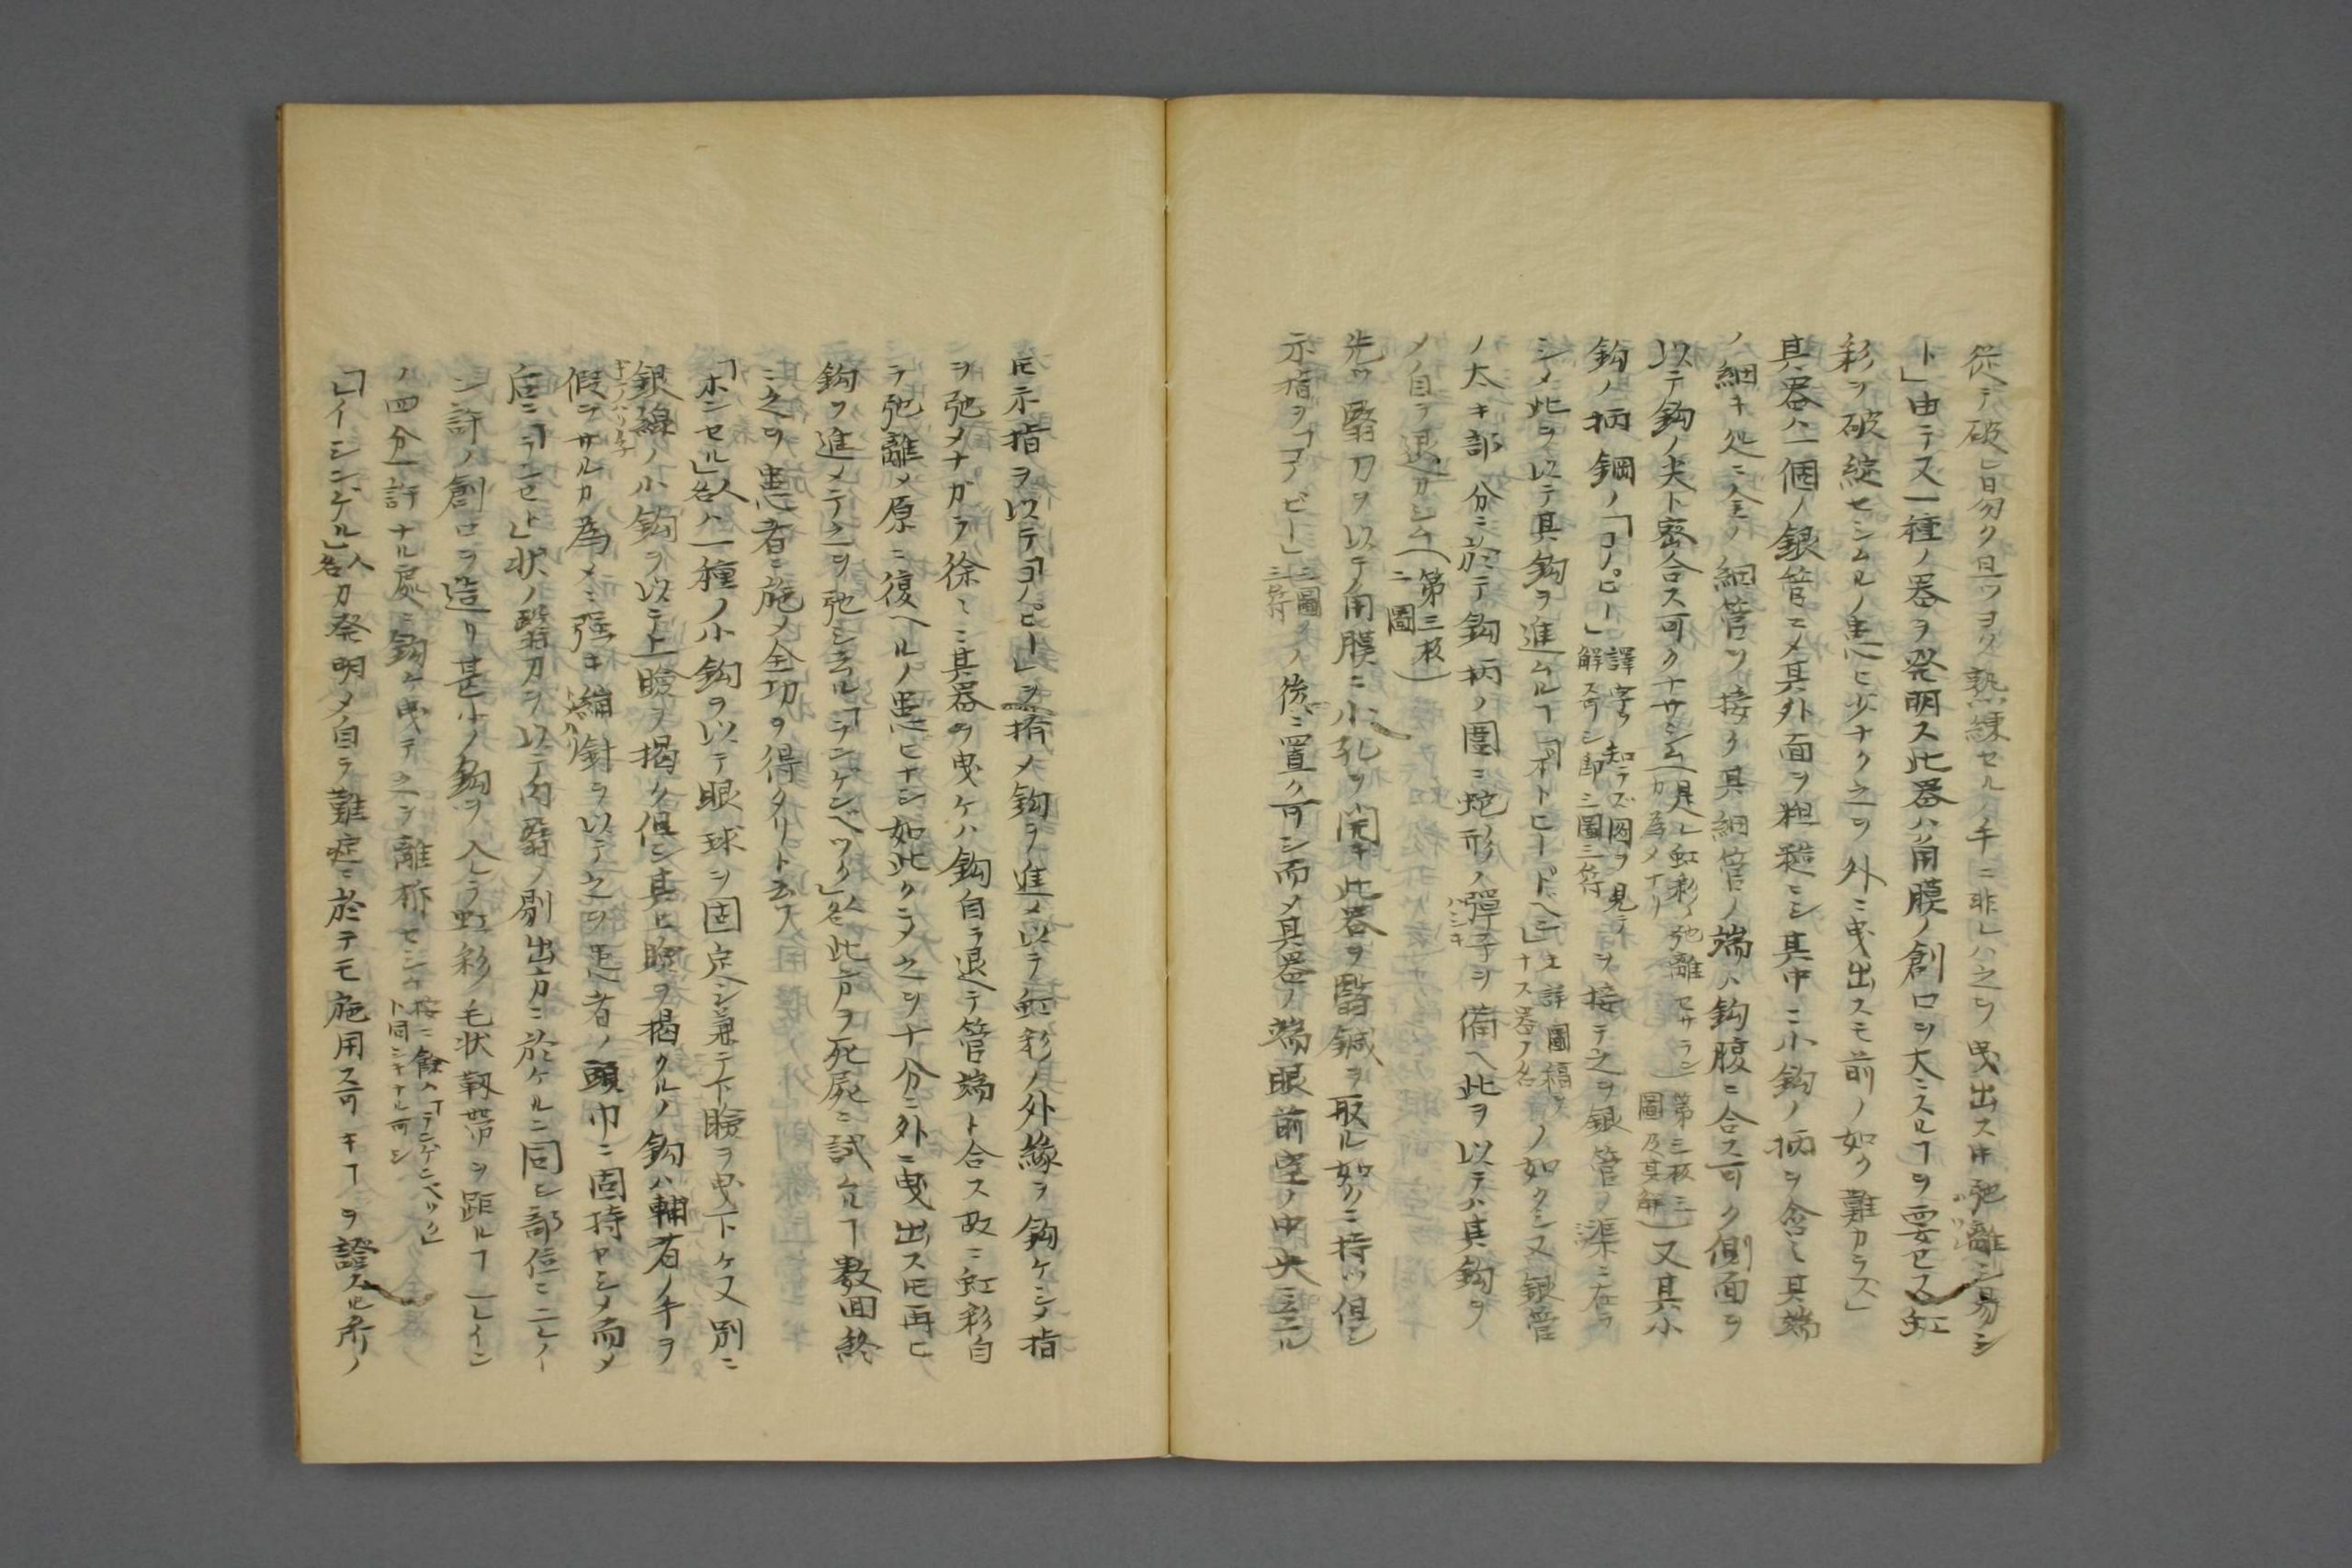 従テ破レ易ク且ツヨク熟練セルノ手ニ非レハ之ヲ曳出スモ弛離シ易シ
ト」由テ又一種ノ器ヲ発明ス此器ハ角膜ノ創口ヲ大ニスルヿヲ要セス虹
彩ヲ破綻セシムルノ患ヒ少ナク之ヲ外ニ曳出スモ前ノ如ク難カラス」
其器ハ一個ノ銀管ニメ其外面ヲ粗糙ニシ其中ニ小鈎ノ柄ヲ含ミ其端
ノ細キ処ニ金ノ細管ヲ接ク其細管ノ端ハ鈎腹ニ合ス可ク側面ヲ
以テ鈎ノ尖ト密合ス可クナサシム(是レ虹彩ノ弛離セサラン
カ為メナリ)(第三板三
圖及其解)又其小
鈎ノ柄鋼ノ「コノピー」譯字ヲ知ラズ図ヲ見テ
解ス可シ即三圖三符ヲ接テ之ヲ銀管ノ渠ニ在ラ
シメ此ヲ以テ其鈎ヲ進ムルヿ
ナス器ノ名ノ如クシ又銀管
ノ太キ部分ニ於テ鈎柄ノ圍ニ蛇形ノ彈子ヲ備ヘ此ヲ以テハ其鈎ヲ
ハシキ
メ自ラ退カシム(第三板
二圖)
先ツ翳刀ヲ以テ角膜ニ小孔ヲ開キ此器ヲ翳鍼ヲ取ル如クニ持ツ但シ
示指ヲ「コノピー」三圖
三符ノ後ニ置ク可シ而メ其器ノ端眼前室ノ中央ニ至ル
㆑示指ヲ以テ「コノピー」ヲ搭メ鈎ヲ進メ以テ虹彩ノ外縁ヲ鈎ケシメ指
ヲ弛メナガラ徐ニ其器ヲ曳ケハ鈎自ラ退テ管端ト合ス故ニ虹彩自
ラ弛離メ原ニ復ヘルノ患ヒナシ如此クシメ之ヲ十分ニ外ニ曳出スモ再ヒ
鈎ヲ進メテ之ヲ弛シ去ル「ランゲンベツク」人名此方ヲ死屍ニ試ムルヿ數回終
ニ之ヲ患者ニ施メ全功ヲ得タリト云
「ホンセル」人名ハ一種ノ小鈎ヲ以テ眼球ヲ固定シ兼テ下瞼ヲ曳下ケ又別ニ
銀線ノ小鈎ヲ以テ上瞼ヲ揚ク但シ其上瞼ヲ揚クルノ鈎ハ輔者ノ手ヲ
假ラサルカ為メニ強キ針ヲ以テ之ヲ患者ノ頭巾ニ固持セシメ而メ
后ニ「ランセト」状ノ翳刀ヲ以テ内翳ノ剔出方ニ於ケルニ同シ部位ニ二レイ
ン許ノ創口ヲ造リ甚小ノ鈎ヲ入レテ虹彩毛状靱帯ヲ距ルヿ一レイン
ノ四分一許ナル處ニ鈎ケ曳テ之ヲ離拆セシム按ニ餘ハ「ランゲンベツク」
ト同シキナル可シ
「レイシンゲル」人名カ発明メ自ラ難症ニ於テモ施用ス可キヿヲ證スル所ノ